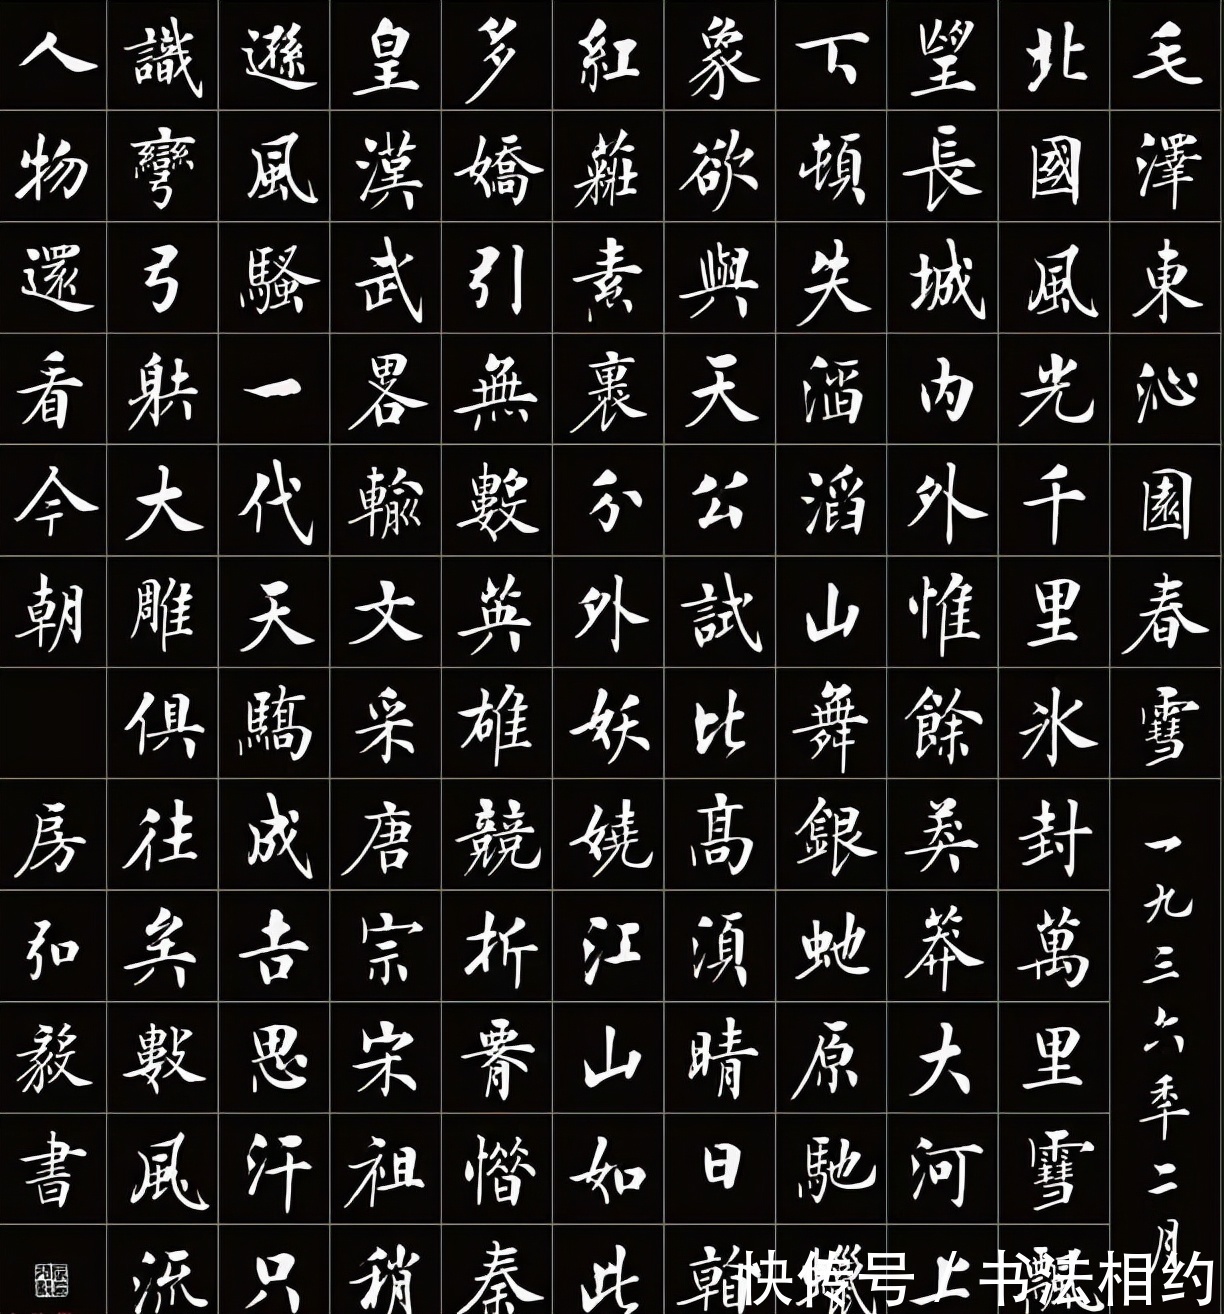 毛澤東沁園春雪
一九三六年二月
北國風光千里氷封萬里雪飄
望長城内外惟餘莽莽大河上
下頓失滔滔山舞銀虵原馳蠟
象欲與天公試比高須晴日
紅粧素裹分外妖嬈江山如此
多嬌引無數英雄競折腰惜秦
皇漢武畧輸文采唐宗宋祖稍
遜風騷一代天驕成吉思汗只
識彎弓射大雕俱往矣數風流
人物還看今朝
房弘毅書
快传号 / 书法相约